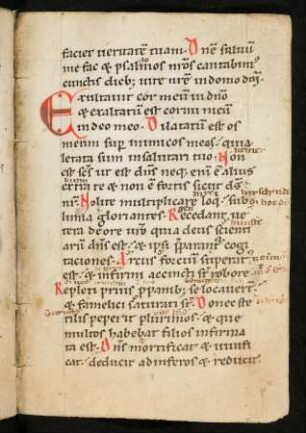 faciet ueritatē tuam. Dnē saluū
me fac & psalmos nr̄os cantabim᷒
cunctis dieb; uite nr̄e in domo dn̄i.
Exultauit cor meū in dn̄o
& exaltatū est cornu meū
in deo meo. Dilatatū est os
meum sup inimicos meos. quia
letata sum in salutari tuo. Non
est sc̄s ut est dn̄s neq; eni ē alius
extra te & non ē fortis sicut ds̄
nr̄. Nolite multiplicare loq̄
limia gloriantes. Recedant ue
tera de ore ur̄o quia deus scienti
arū dn̄s est. & ipsi p̄parant᷒ cogi
tationes. Arcus fortiū superat᷒
est & infirmi accincti st̄ robore
Repleti prius p panib; se locauert̄
& famelici saturati st̄. Donec ste
rilis peperit plurimos. & que
multos habebat filios infirma
ta est. Dn̄s mortificat & uiuifi
cat. deducit ad inferos & reducit